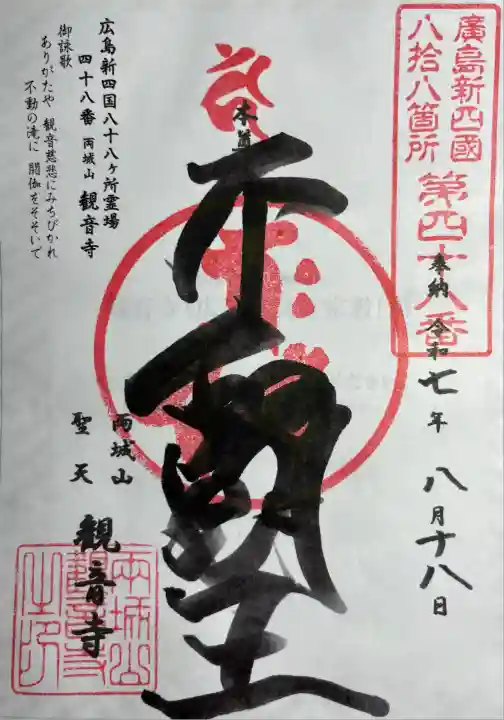 廣島新四國
八拾八箇所 第四十八番
奉納 令和七年 八月十八日
本尊
不動明王
広島新四国八十八ヶ所霊場
四十八番 両城山 観音寺
御詠歌
ありがたや 観音慈悲にみちびかれ
不動の滝に 閼伽をそそいで
両城山
聖天 観音寺
両城山
觀音寺
之印